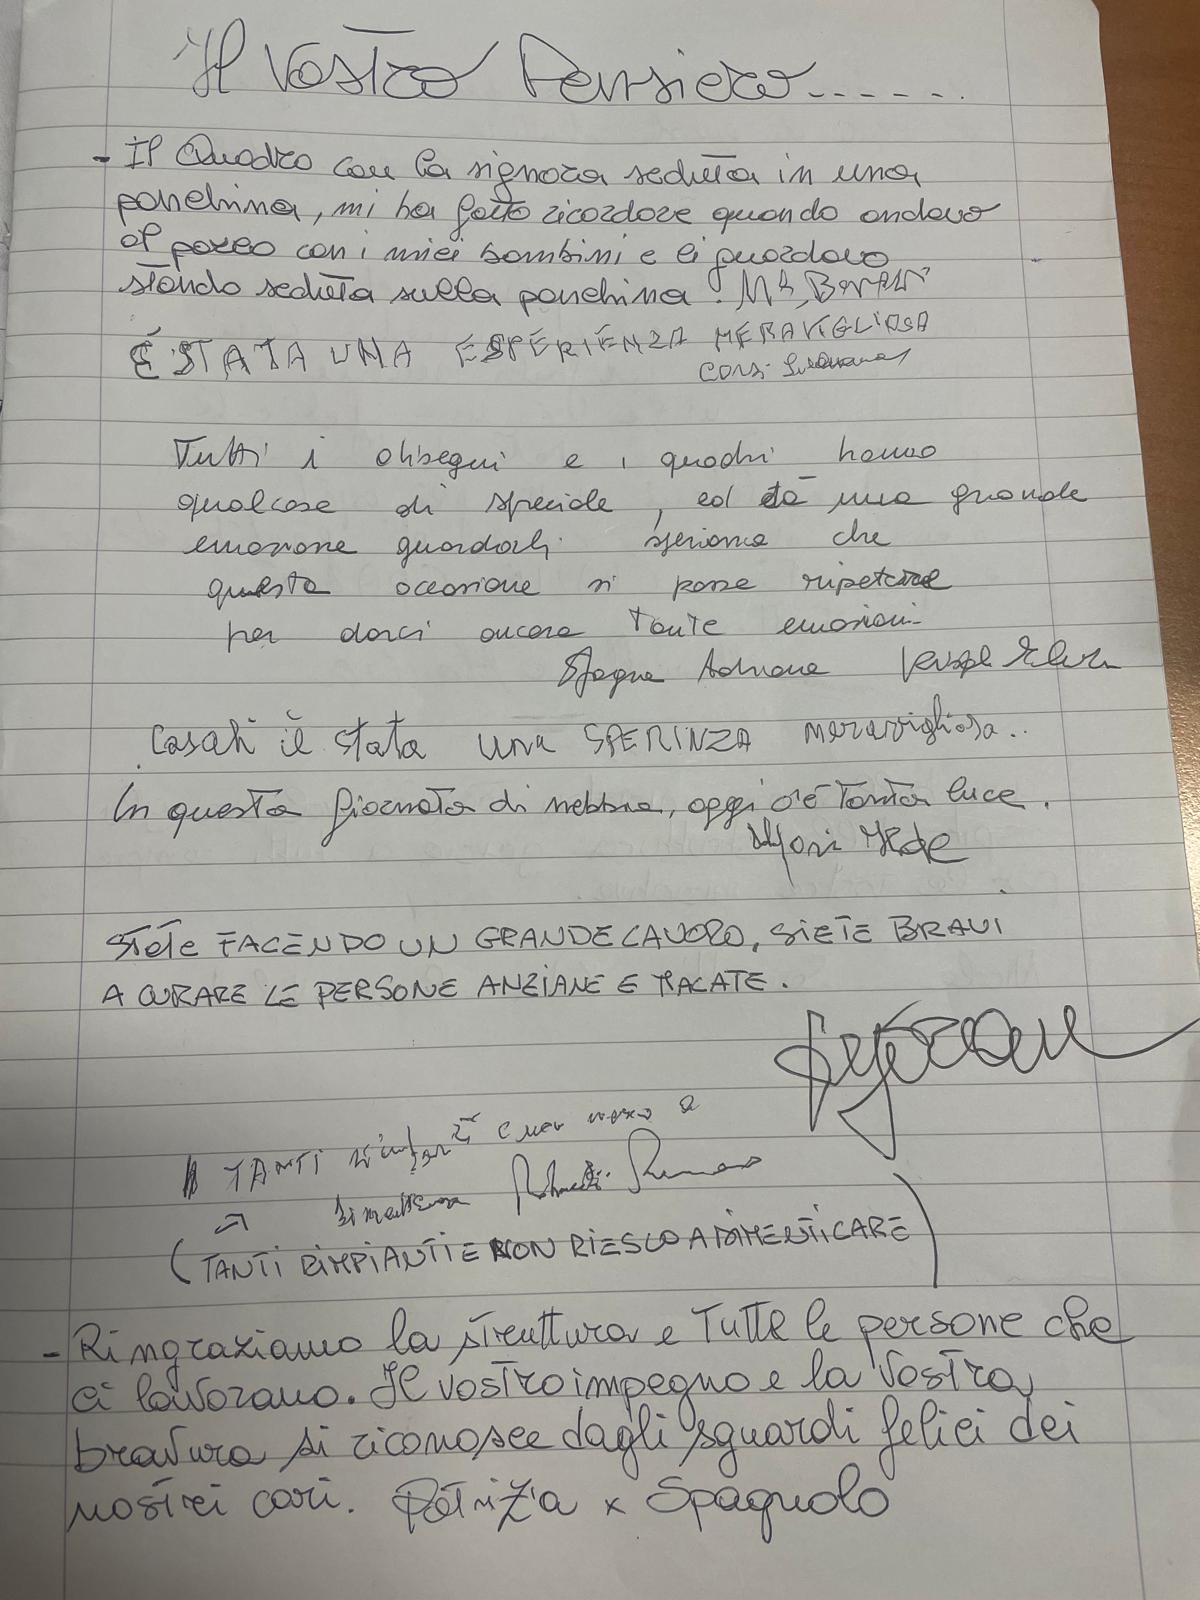 Il Vostro Pensiero......
- Il Quadro con la signora seduta in una
panchina, mi ha fatto ricordare quando andavo
al parco con i miei bambini e li guardavo
stando seduta sulla panchina.
É STATA UNA ESPERIENZA MERAVIGLIOSA
Corsi
Tutti i ohisegui e i quadri hanno
qualcose di speciale, ed dà una grande
emozione guardarli speriamo che
questa occasione si possa ripetere
per darci ancora tante emozioni
Adriana
Casati iè stata una SPERINZA meravigliosa..
In questa giornata di nebbia, oggi c'è tanta luce.
Mori
Siete FACENDO UN GRANDE LAVORO, SIETE BRAVI
A CURARE LE PERSONE ANZIANE E MALATE.
TANTI
(TANTI RIMPIANTI E NON RIESCO A DIMENTICARE)
- Ringraziamo la struttura e tutte le persone che
ci lavorano. Il vostro impegno e la vostra
bravura si riconosce dagli sguardi felici dei
nostri cari. Patrizia x Spagnolo